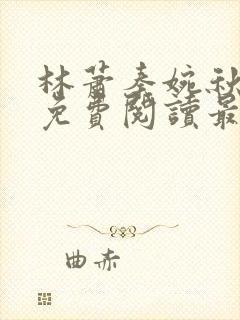 林蕭秦婉秋
免費閱讀最
曲赤